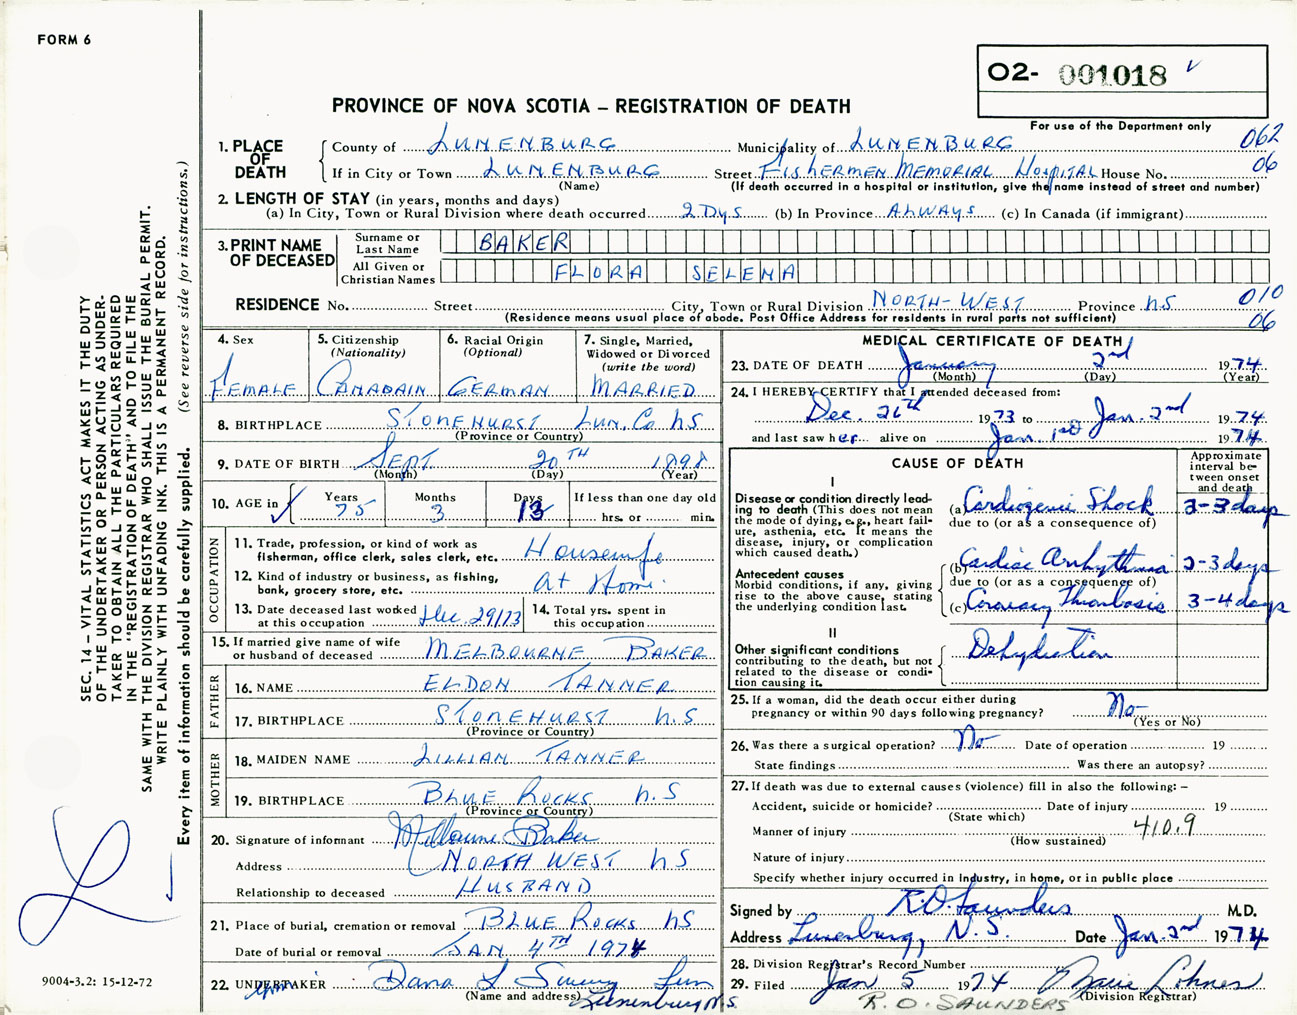 FORM 6
O2- 001018 ✓
PROVINCE OF NOVA SCOTIA – REGISTRATION OF DEATH
For use of the Department only
062
06
1. PLACE OF DEATH
County of LUNENBURG Municipality of LUNENBURG
If in City or Town LUNENBURG Street FISHERMEN MEMORIAL HOSPITAL House No.
(Name) (If death occurred in a hospital or institution, give the name instead of street and number)
2. LENGTH OF STAY (in years, months and days)
(a) In City, Town or Rural Division where death occurred 2 DYS (b) In Province ALWAYS (c) In Canada (if immigrant)
3. PRINT NAME OF DECEASED
Surname or Last Name BAKER
All Given or Christian Names FLORA SELENA
RESIDENCE No. Street City, Town or Rural Division NORTH-WEST Province NS 010
(Residence means usual place of abode. Post Office Address for residents in rural parts not sufficient) 06
4. Sex
FEMALE
5. Citizenship
(Nationality)
CANADAIN
6. Racial Origin
(Optional)
GERMAN
7. Single, Married, Widowed or Divorced
(write the word)
MARRIED
8. BIRTHPLACE STONEHURST LUN. CO NS
(Province or Country)
9. DATE OF BIRTH SEPT 20TH 1898
(Month) (Day) (Year)
10. AGE in ✓ Years Months Days If less than one day old
75 3 13 hrs. or min.
OCCUPATION
11. Trade, profession, or kind of work as fisherman, office clerk, sales clerk, etc. Housewife
12. Kind of industry or business, as fishing, bank, grocery store, etc. At Home
13. Date deceased last worked at this occupation Dec. 29/73
14. Total yrs. spent in this occupation
15. If married give name of wife or husband of deceased MELBOURNE BAKER
FATHER
16. NAME ELDON TANNER
17. BIRTHPLACE STONEHURST N.S
(Province or Country)
MOTHER
18. MAIDEN NAME LILLIAN TANNER
19. BIRTHPLACE BLUE ROCKS N.S
(Province or Country)
20. Signature of informant Melbourne Baker
Address NORTH WEST NS
Relationship to deceased HUSBAND
21. Place of burial, cremation or removal BLUE ROCKS NS
Date of burial or removal JAN 4TH 1974
22. UNDERTAKER Dana L Sweeny Lun
(Name and address) Lunenburg N.S.
MEDICAL CERTIFICATE OF DEATH
23. DATE OF DEATH January 2nd 1974
(Month) (Day) (Year)
24. I HEREBY CERTIFY that I attended deceased from:
Dec. 26th 1973 to Jan. 2nd 1974
and last saw her alive on Jan. 1st 1974
CAUSE OF DEATH
Approximate interval between onset and death
I
Disease or condition directly leading to death (This does not mean the mode of dying, e.g., heart failure, asthenia, etc. It means the disease, injury, or complication which caused death.)
(a) Cardiogenic Shock 2-3 days
due to (or as a consequence of)
Antecedent causes
Morbid conditions, if any, giving rise to the above cause, stating the underlying condition last.
(b) Cardiac Arrhythmia 2-3 days
due to (or as a consequence of)
(c) Coronary Thrombosis 3-4 days
II
Other significant conditions
contributing to the death, but not related to the disease or condition causing it.
Dehydration
25. If a woman, did the death occur either during pregnancy or within 90 days following pregnancy? No
(Yes or No)
26. Was there a surgical operation? No Date of operation 19
State findings Was there an autopsy?
27. If death was due to external causes (violence) fill in also the following: –
Accident, suicide or homicide? Date of injury 19
(State which)
Manner of injury 410.9
(How sustained)
Nature of injury
Specify whether injury occurred in industry, in home, or in public place
Signed by R.O. Saunders M.D.
Address Lunenburg, N.S. Date Jan. 2nd 1974
28. Division Registrar's Record Number
29. Filed Jan 5 1974 Lohnes
(Division Registrar)
R. O. SAUNDERS
SEC. 14 – VITAL STATISTICS ACT MAKES IT THE DUTY
OF THE UNDERTAKER OR PERSON ACTING AS UNDER-
TAKER TO OBTAIN ALL THE PARTICULARS REQUIRED
IN THE "REGISTRATION OF DEATH" AND TO FILE THE
SAME WITH THE DIVISION REGISTRAR WHO SHALL ISSUE THE BURIAL PERMIT.
WRITE PLAINLY WITH UNFADING INK. THIS IS A PERMANENT RECORD.
Every item of information should be carefully supplied. (See reverse side for instructions.)
9004-3.2: 15-12-72